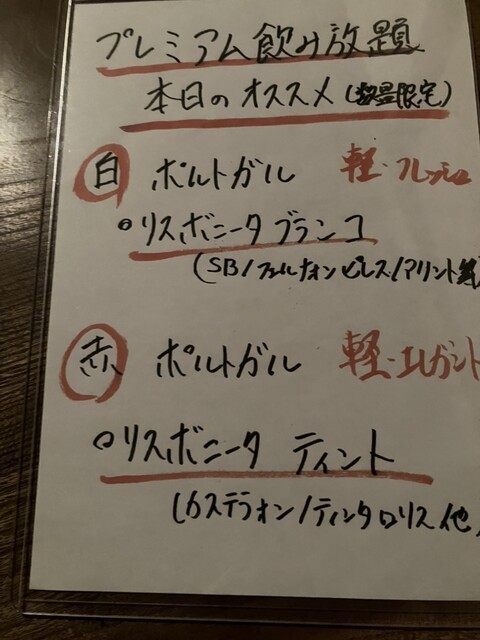 プレミアム飲み放題
本日のオススメ(数量限定)
白 ポルトガル 軽・フレッシュ
リスボニータ ブランコ
(SB/フェルナォンピレス/アリント等
赤 ポルトガル 軽・エレガント
リスボニータ ティント
(カステラォン/ティンタロリス他